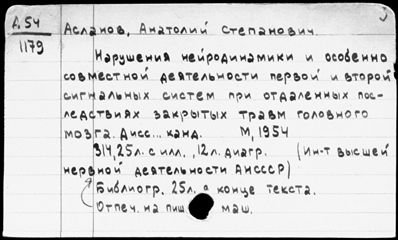 А.54
1179
Асланов, Анатолий Степанович.
Нарушения нейродинамики и особенно
совместной деятельности первой и второй
сигнальных систем при отдаленных пос-
ледствиях закрытых травм головного
мозга. Дисс... канд. М, 1954
314, 25л. с илл., 12л. диагр. (Ин-т высшей
нервной деятельности АНСССР)
Библиогр. 25л. в конце текста.
Отпеч. на пиш маш.